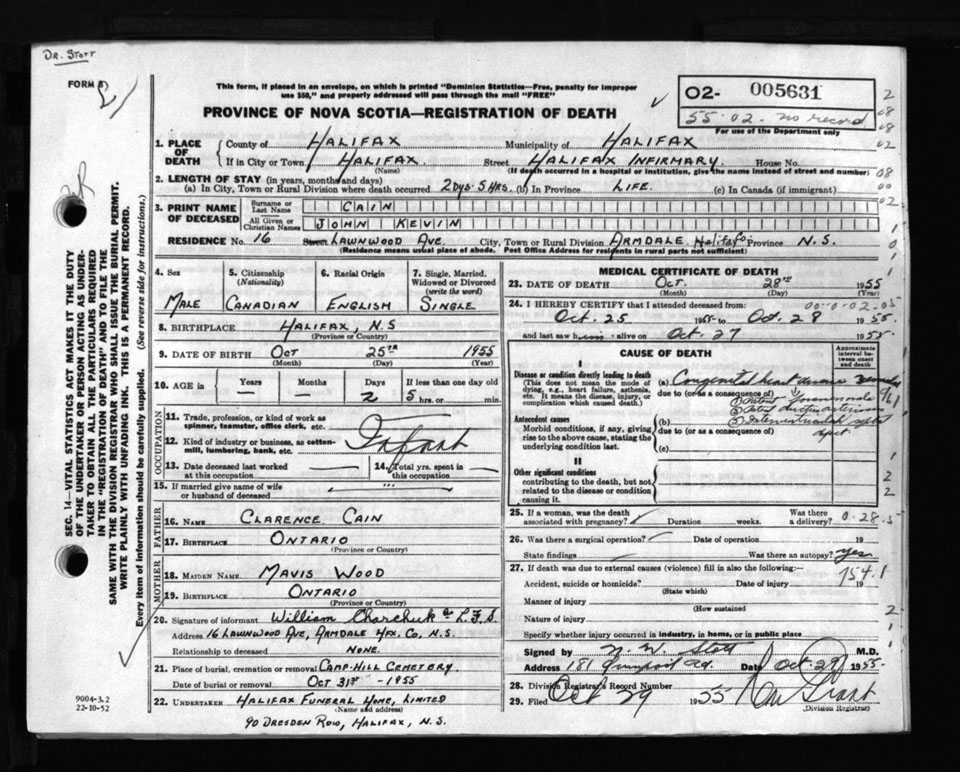 DR. STOTT
FORM 3
This form, if placed in an envelope, on which is printed "Dominion Statistics—Free, penalty for improper
use $50," and properly addressed will pass through the mail "FREE"
PROVINCE OF NOVA SCOTIA—REGISTRATION OF DEATH
02- 005631
55-02- no record
For use of the Department only
1. PLACE OF DEATH
County of HALIFAX Municipality of HALIFAX
If in City or Town HALIFAX. Street HALIFAX INFIRMARY. House No.
(Name) (If death occurred in a hospital or institution, give the name instead of street and number)
2. LENGTH OF STAY (in years, months and days)
(a) In City, Town or Rural Division where death occurred 2 DYS. 5 HRS. (b) In Province LIFE. (c) In Canada (if immigrant)
3. PRINT NAME OF DECEASED
Surname or Last Name CAIN
All Given or Christian Names JOHN KEVIN
RESIDENCE No. 16 Street LAWNWOOD AVE. City, Town or Rural Division ARMDALE, Halifax Co. Province N.S.
(Residence means usual place of abode. Post Office Address for residents in rural parts not sufficient)
4. Sex MALE
5. Citizenship (Nationality) CANADIAN
6. Racial Origin ENGLISH
7. Single, Married, Widowed or Divorced (write the word) SINGLE
8. BIRTHPLACE HALIFAX, N.S
(Province or Country)
9. DATE OF BIRTH OCT 25TH 1955
(Month) (Day) (Year)
10. AGE IN Years Months Days If less than one day old
— — 2 5 hrs. or min.
OCCUPATION
11. Trade, profession, or kind of work as spinner, teamster, office clerk, etc.
12. Kind of industry or business, as cotton-mill, lumbering, bank, etc. Infant
13. Date deceased last worked at this occupation
14. Total yrs. spent in this occupation
15. If married give name of wife or husband of deceased
FATHER
16. NAME CLARENCE CAIN
17. BIRTHPLACE ONTARIO
(Province or Country)
MOTHER
18. MAIDEN NAME MAVIS WOOD
19. BIRTHPLACE ONTARIO
(Province or Country)
20. Signature of informant William Charchuk
Address 16 LAWNWOOD AVE, ARMDALE HFX. CO. N.S.
Relationship to deceased NONE.
21. Place of burial, cremation or removal CAMP HILL CEMETERY
Date of burial or removal OCT 31ST -1955
22. UNDERTAKER HALIFAX FUNERAL HOME, LIMITED
(Name and address)
90 DRESDEN ROW, HALIFAX, N.S.
MEDICAL CERTIFICATE OF DEATH
23. DATE OF DEATH OCT. 28TH 1955
(Month) (Day) (Year)
24. I HEREBY CERTIFY that I attended deceased from:
Oct. 25 1955 to Oct. 28 1955
and last saw him alive on Oct. 27 1955
CAUSE OF DEATH
Approximate interval between onset and death
I
Disease or condition directly leading to death
(This does not mean the mode of dying, e.g., heart failure, asthenia, etc. It means the disease, injury, or complication which caused death.)
(a) Congenital heart
due to (or as a consequence of)
Antecedent causes
Morbid conditions, if any, giving rise to the above cause, stating the underlying condition last.
(b)
due to (or as a consequence of)
(c)
II
Other significant conditions
contributing to the death, but not related to the disease or condition causing it.
25. If a woman, was the death associated with pregnancy? Duration weeks. Was there a delivery?
26. Was there a surgical operation? Date of operation 19
State findings Was there an autopsy? yes
27. If death was due to external causes (violence) fill in also the following:— 754.1
Accident, suicide or homicide? Date of injury 19
(State which)
Manner of injury
(How sustained
Nature of injury
Specify whether injury occurred in industry, in home, or in public place
Signed by N. W. Stott M.D.
Address 181 Date Oct 29 1955
28. Division Registrar's Record Number
29. Filed Oct 29 1955
(Division Registrar)
SEC. 14—VITAL STATISTICS ACT MAKES IT THE DUTY
OF THE UNDERTAKER OR PERSON ACTING AS UNDER-
TAKER TO OBTAIN ALL THE PARTICULARS REQUIRED
IN THE "REGISTRATION OF DEATH" AND TO FILE THE
SAME WITH THE DIVISION REGISTRAR WHO SHALL ISSUE THE BURIAL PERMIT.
WRITE PLAINLY WITH UNFADING INK. THIS IS A PERMANENT RECORD.
Every item of information should be carefully supplied. (See reverse side for instructions.)
9004-3.2
22-10-52